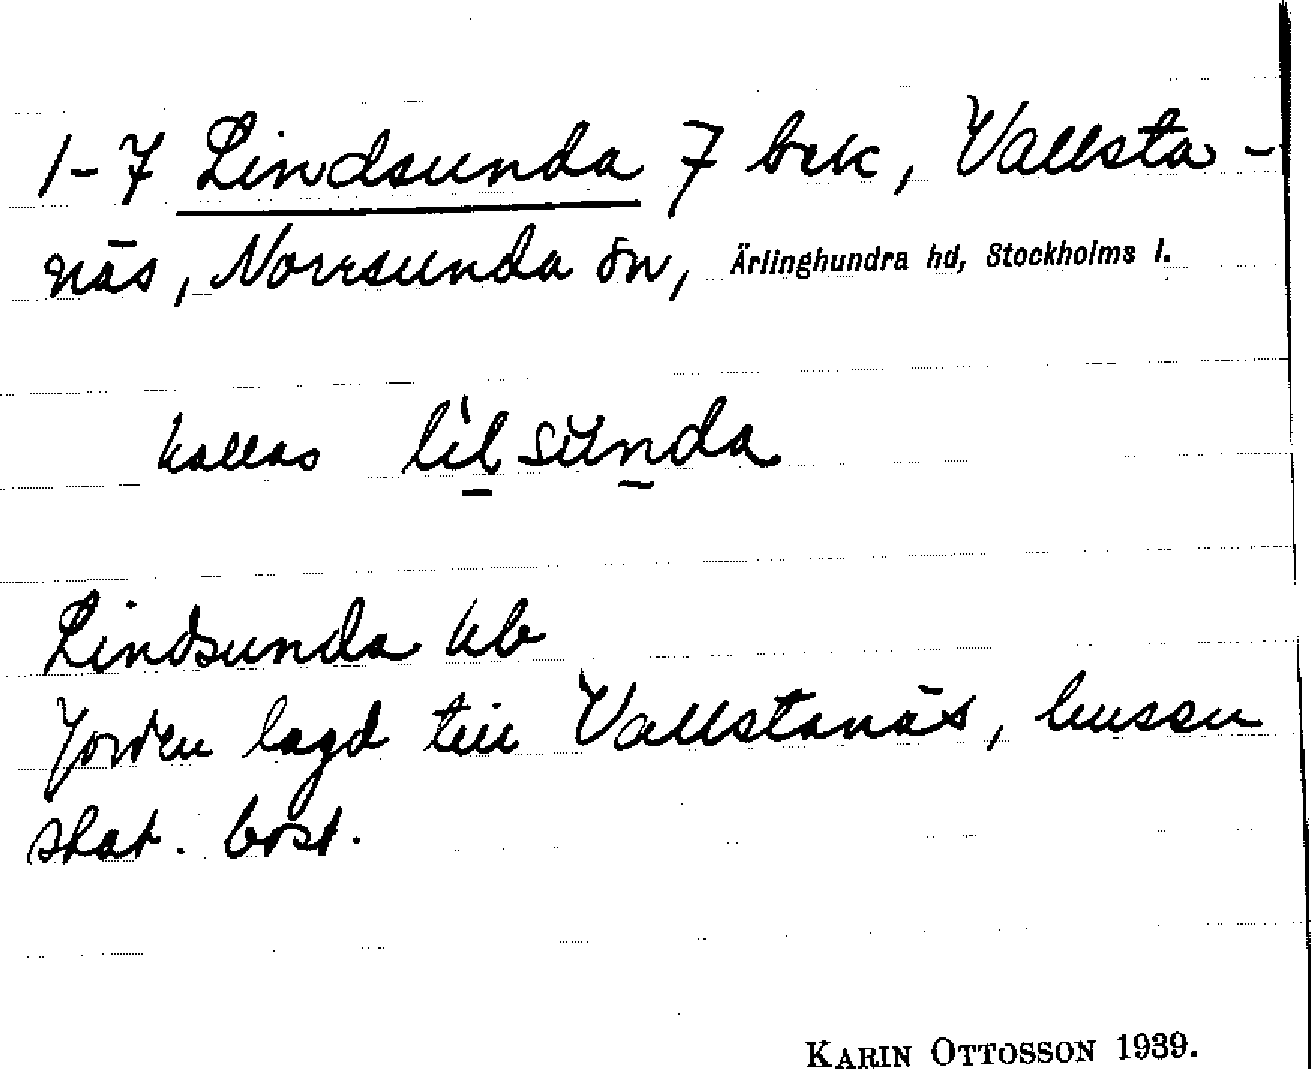 1-7 Lindsunda 7 bck, Vallsta-
näs, Norrsunda sn, Ärlinghundra hd, Stockholms l.
kallas lìlsùnda
Lindsunda kb
Jorden lagd till Vallstanäs, hussen
stat. bost.
KARIN OTTOSSON 1939.